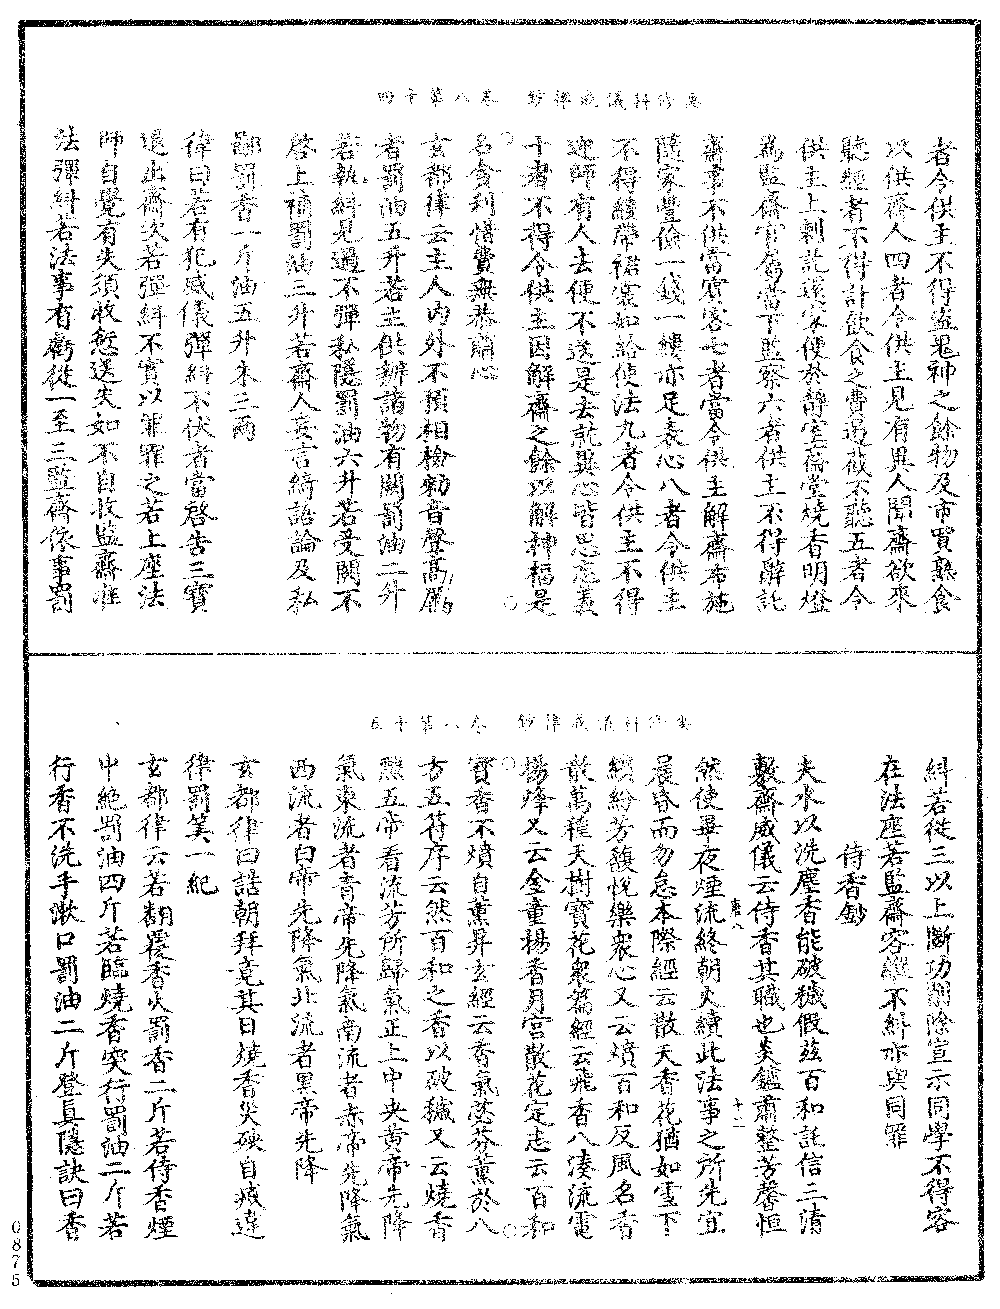 要修科儀戒律鈔　卷八第十四
者令供主不得盜鬼神之餘物及市買熟食
以供齋人四者令供主見有異人聞齋欲來
聽經者不得計飲食之費遏截不聽五者令
供主上剌託還家便於靜室齋堂燒香明燈
為監齋官屬當下監察六者供主不得辭託
齋事不供當賓客七者當令供主解齋布施
隨家豐儉一錢一縷亦足表心八者令供主
不得續帶裙裳如給使法九者令供主不得
迎師有人去便不送是去就異心皆思忘義
十者不得令供主因解齋之餘以解神福是
名貪利惜費無恭肅心
玄都律云主人內外不預相檢勑音聲高厲
者罰油五升若主供辦諸物有闕罰油二升
若執糾見過不彈私隱罰油六升若受關不
啓上補罰油三升若齋人妄言綺語論及私
鄙罰香一斤油五升朱三兩
律曰若有犯威儀彈糾不伏者當啓告三寶
退出齋次若彈糾不實以罪罪之若上座法
師自覺有失須收愆送失如不自收監齋維
法彈糾若法事有虧從一至三監齋依事罰
要修科儀戒律鈔　卷八第十五
糾若從三以上斷功削除宣示同學不得容
在法座若監齋容縱不糾亦與同罪
侍香鈔
夫水以洗塵香能破穢假茲百和託信三清
敷齋威儀云侍香其職也炎鑪肅整芳馨恒
然使晝夜煙流終朝火續此法事之所先宜
晨昏而勿怠本際經云散天香花猶如雪下
繽紛芳馥悅樂衆心又云熕百和反風名香
散萬種天樹寶花衆篇經云飛香八湊流電
揚烽又云金童揚香月宮散花定志云百和
寶香不熕自薰昇玄經云香氣苾芬薰於八
方五符序云然百和之香以破穢又云燒香
願五帝看流芳所歸氣正上中央黃帝先降
氣東流者青帝先降氣南流者赤帝先降氣
西流者白帝先降氣北流者黑帝先降
玄都律曰諸朝拜竟其日燒香災殃自滅違
律罰筭一紀
玄都律云若翻覆香火罰香二斤若侍香煙
中絕罰油四斤若臨燒香突行罰油二斤若
行香不洗手漱口罰油二斤登真隱訣曰香
唐八
十二
0875